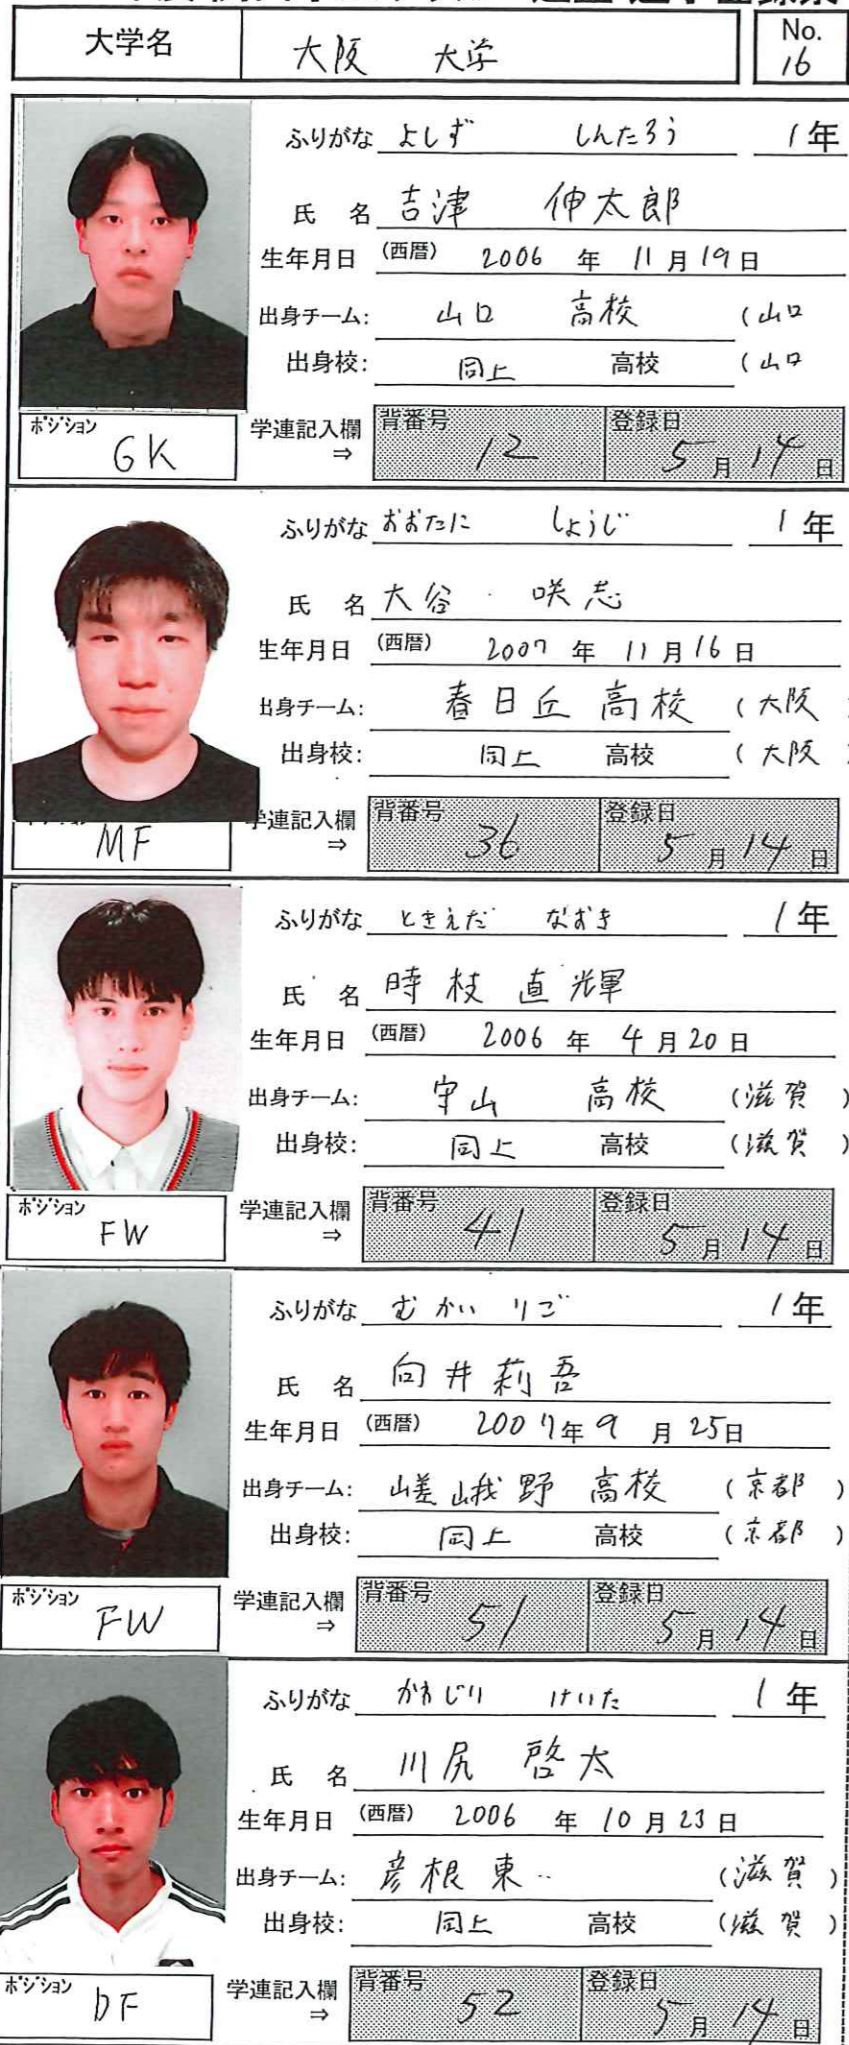 大学名 大阪 大学 No. 16
ふりがな よしず しんたろう 1年
氏 名 吉津 伸太郎
生年月日 (西暦) 2006 年 11 月 19 日
出身チーム: 山口 高校 (山口
出身校: 同上 高校 (山口
ポジション GK 学連記入欄 ⇒ 背番号 12 登録日 5 月 14 日
ふりがな おおたに しょうじ 1年
氏 名 大谷 咲志
生年月日 (西暦) 2007 年 11 月 16 日
出身チーム: 春日丘 高校 (大阪
出身校: 同上 高校 (大阪
MF 学連記入欄 ⇒ 背番号 36 登録日 5 月 14 日
ふりがな ときえだ なおき 1年
氏 名 時枝 直輝
生年月日 (西暦) 2006 年 4 月 20 日
出身チーム: 守山 高校 (滋賀 )
出身校: 同上 高校 (滋賀 )
ポジション FW 学連記入欄 ⇒ 背番号 41 登録日 5 月 14 日
ふりがな むかい りご 1年
氏 名 向井莉吾
生年月日 (西暦) 2007年 9 月 25日
出身チーム: 嵯峨野 高校 (京都 )
出身校: 同上 高校 (京都 )
ポジション FW 学連記入欄 ⇒ 背番号 51 登録日 5 月 14 日
ふりがな かわじり けいた 1年
氏 名 川尻 啓太
生年月日 (西暦) 2006 年 10 月 23 日
出身チーム: 彦根東 (滋賀 )
出身校: 同上 高校 (滋賀 )
ポジション DF 学連記入欄 ⇒ 背番号 52 登録日 5 月 14 日